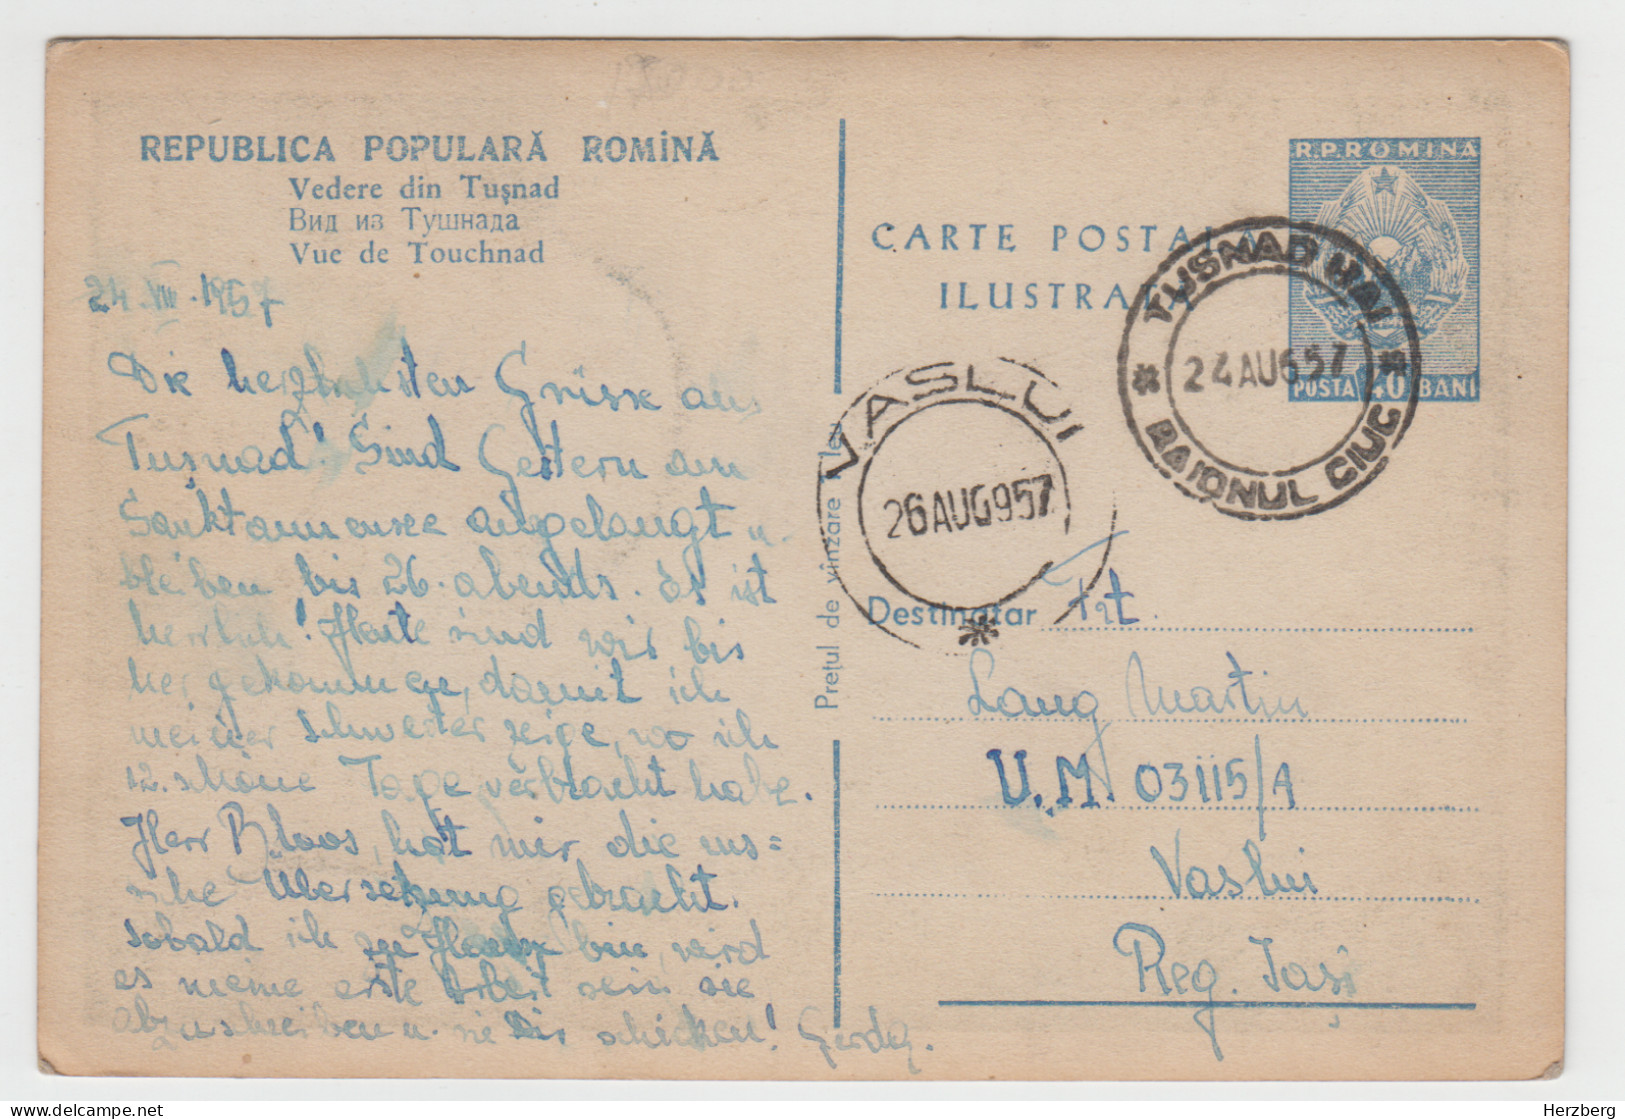 REPUBLICA POPULARĂ ROMÎNĂ
Vedere din Tușnad
Вид из Тушнада
Vue de Touchnad
24.VIII.1957
Die herzlichsten Grüsse aus
Tușnad! Sind Gestern am
Sanktannensee angelangt u.
bleiben bis 26. abends. Es ist
herrlich! Heute sind wir bis
hergekommen, damit ich
meiner Schwester zeige, wo ich
12 schöne Tage verbracht habe.
Herr Bloos, hat mir die rus=
sische Übersetzung gebracht.
Sobald ich zu Hause bin, wird
es meine erste Arbeit sein sie
abzuschreiben u. sie Dir schicken! Gerda.
Prețul de vînzare 1 leu
CARTE POSTALĂ
ILUSTRATĂ
R.P.ROMINA
POSTA 40 BANI
TUSNAD BAI
24 AUG 57
RAIONUL CIUC
VASLUI
26 AUG 957
Destinatar
Lang Martin
U.M. 03115/A
Vaslui
Reg. Iași
delcampe.net
Herzberg